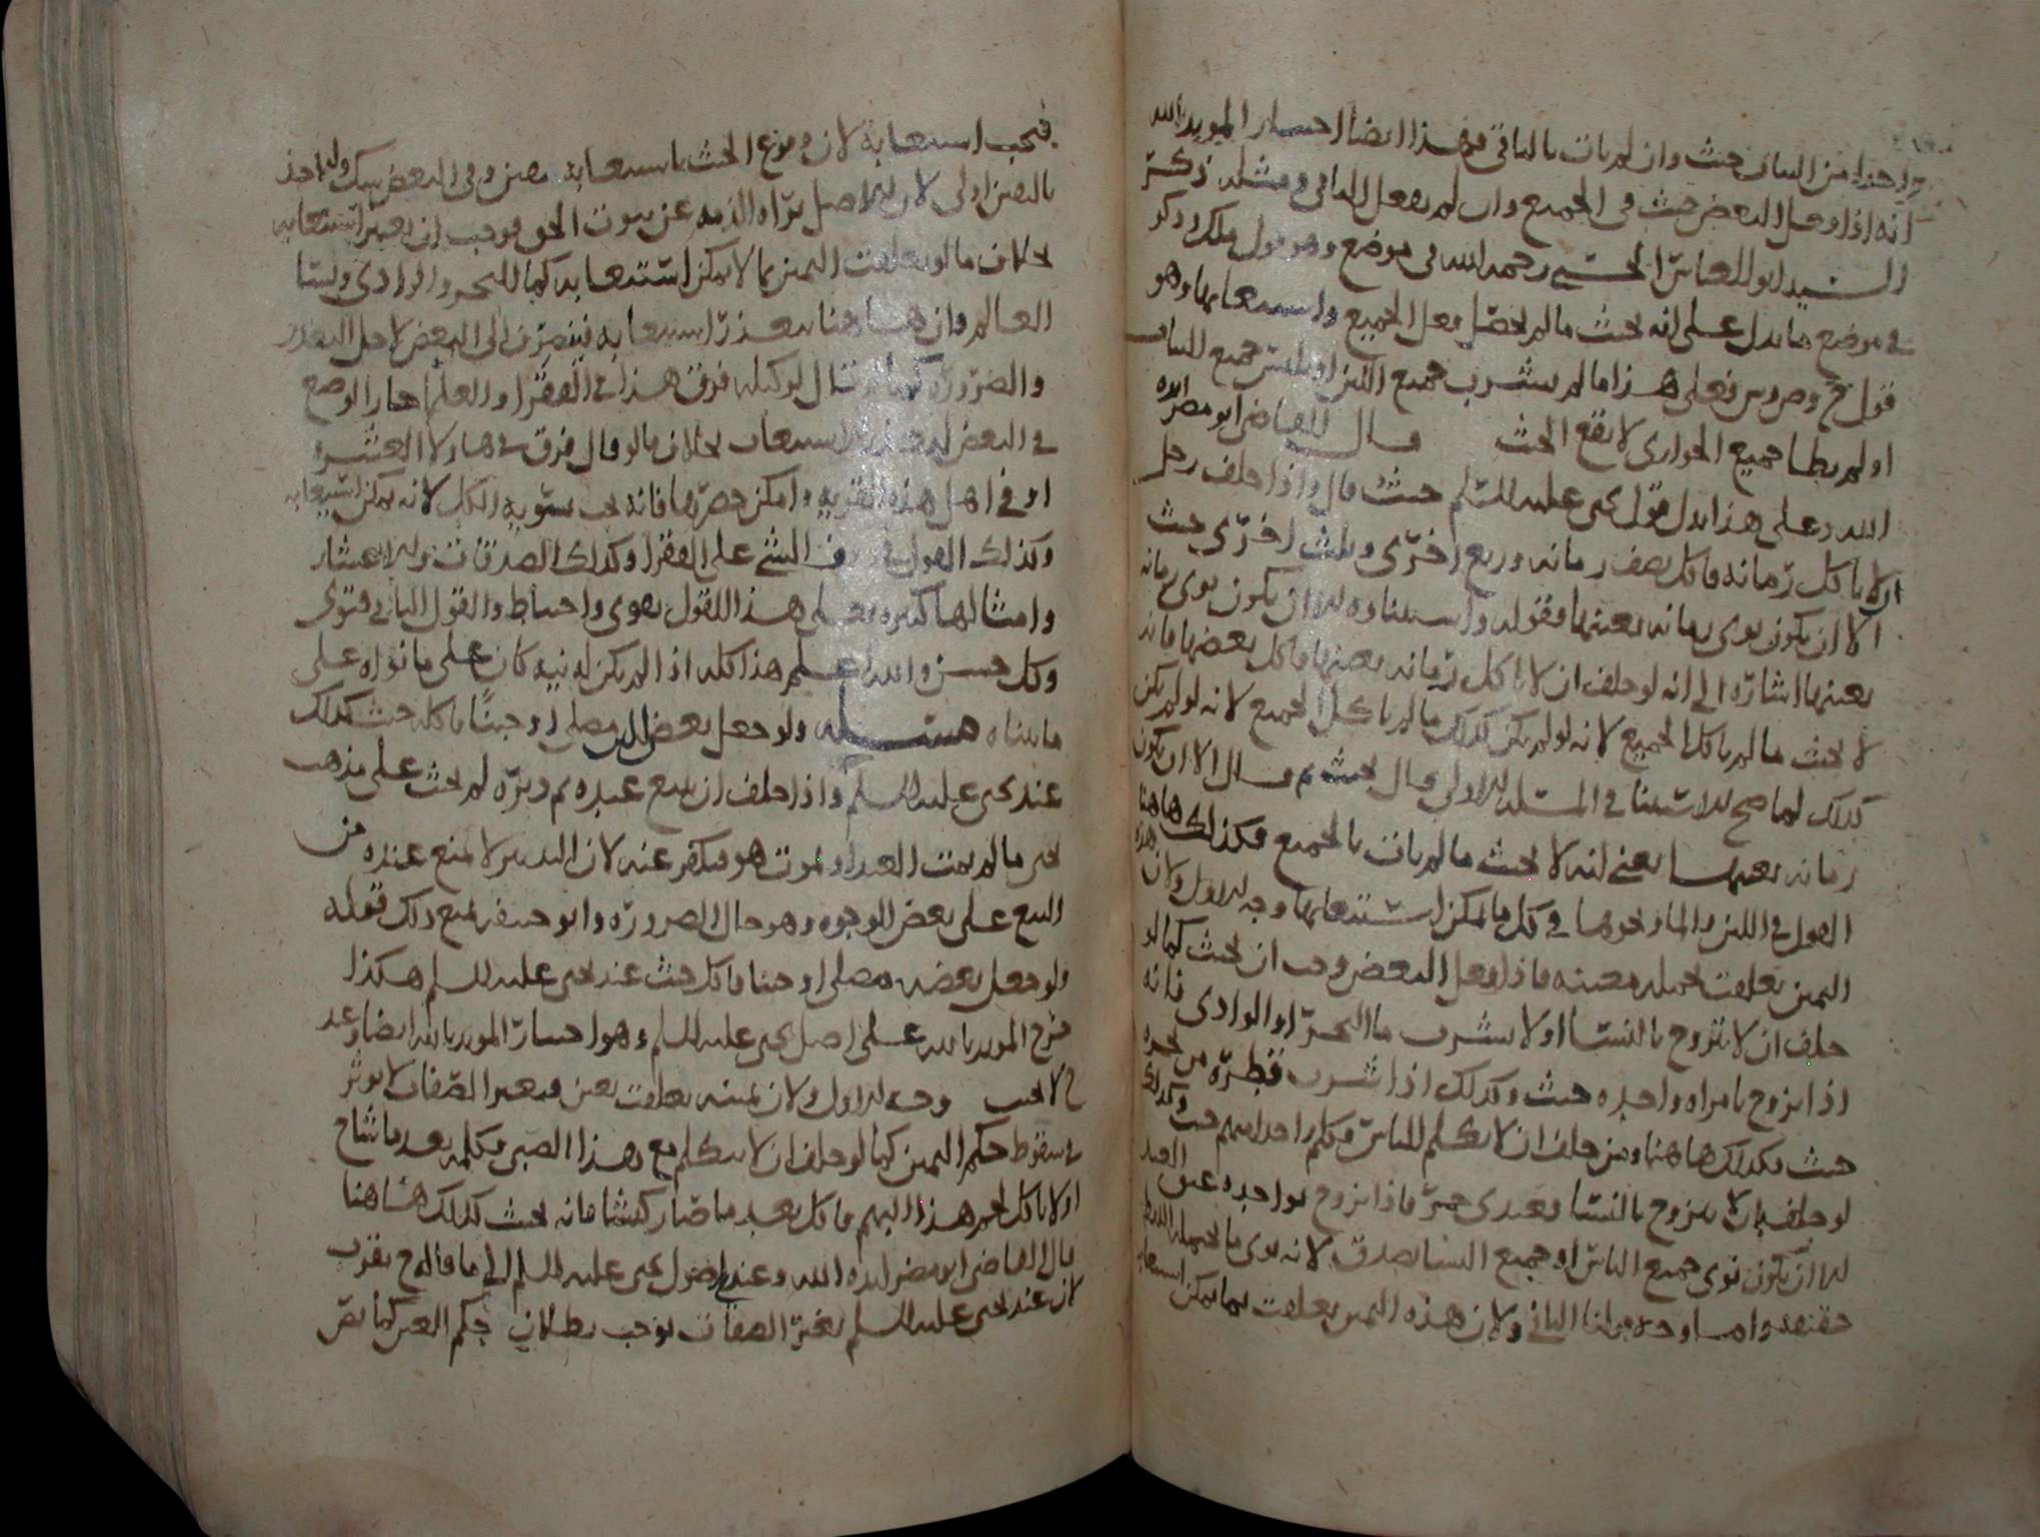 واحدا من الثياب حنث وان لم يات بالباقي فهذا ايضا اختيار المويد بالله
انه اذا فعل البعض حنث في الجميع وان لم يفعل الباقي ومثله ذكر
السيد ابو العباس الحسني رحمه الله في موضع وهو قول ملك وذكر
في موضع ما يدل على انه لا يحنث ما لم يحصل فعل الجميع واستيعابها وهو
قول ح وص وش فعلى هذا ما لم يشرب جميع اللبن او يلبس جميع الثياب
او لم يطا جميع الجواري لا يقع الحنث قال القاضي ابو مضر ايده
الله وعلى هذا يدل قول يحيى عليه السلم حيث قال واذا حلف رجل
ان لا ياكل رمانة فاكل نصف رمانه وربع اخرى وثلث اخرى حنث
الا ان يكون نوى رمانه بعينها فقوله واستثناوه الا ان يكون نوى رمانه
بعينها اشارة الى انه لو حلف ان لا ياكل رمانه بعينها فاكل بعضها فانه
لا يحنث ما لم ياكل الجميع لانه لو لم يكن كذلك ما لم ياكل الجميع لانه لو لم يكن
كذلك لما صح الاستثنا في المسئله الاولى وقال يحنث ثم قال الا ان يكون
رمانه بعينها يعني انه لا يحنث ما لم يات بالجميع فكذلك هاهنا
القول في اللبن والماء ونحوها في كل ما يمكن استيعابها وجه الاول ولان هذه
اليمين تعلقت بجمله معينه فاذا فعل البعض وجب ان يحنث كما لو
حلف ان لا يتزوج بالنسا او لا يشرب ما البحر او الوادي فانه
اذا تزوج بامراه واحده حنث وكذلك اذا شرب قطرة من البحر
حنث فكذلك هاهنا ومن حلف ان لا يكلم الناس فكلم واحدا منهم حنث وكذلك
لو حلف ان لا يتزوج بالنسا فعبدي حر فاذا تزوج بواحده عتق العبد
الا ان يكون نوى جميع الناس او جميع النسا يصدق لانه نوى ما يحتمله اللفظ
حقيقه واما وجه قولنا الثاني ولان هذه اليمين تعلقت بما يمكن استيعابه
فيجب استيعابه لان وقوع الحنث باستيعابه يقين وفي البعض شك والاخذ
باليقين اولى لان الاصل براه الذمه عن ثبوت الحق فوجب ان يعتبر استيعابه
بخلاف ما لو تعلقت اليمين بما لا يمكن استيعابه كما البحر والوادي ونسا
العالم فان هاهنا يتعذر استيعابه فينصرف الى البعض لاجل التعذر
والضرورة كما لو قال لوكيله فرق هذا في الفقرا والعلما جاز الوضع
في البعض لتعذر الاستيعاب بخلاف ما لو قال فرق في هاولا العشره
او في اهل هذه القرية وامكن حصرها فانه يجب تسوية الكل لانه يمكن استيعابه
وكذلك القول في الشي على الفقرا وكذلك الصدقات والاعشار
وامثالها كثيره فعلى هذا القول تقوى واحتياط والقول الثاني فتوى
وكل حسن والله اعلم هذا كله اذا لم يكن له نيه كان على ما نواه على
ما بيناه مسئله ولو جعل بعض اللبن مصلا او جبنا فاكله حنث كذلك
عند يحيى عليه السلم واذا حلف ان يبيع عبده ثم دبره لم يحنث على مذهب
يحيى ما لم يمت العبد او يموت هو فيكفر عنه لان التدبير لا يمنع عنده من
البيع على بعض الوجوه وهو حال الضرورة وابو حنيفه يمنع ذلك قوله
ولو جعل بعضه مصلا او جبنا فاكل حنث عند يحيى عليه السلم هكذا
خرج المويد بالله على اصل يحيى عليه السلم وهو اختيار المويد بالله ايضا وعند
ح لا يجب وجه الاول ولان يمينه تعلقت بعين فتغير الصفات لا يوثر
في سقوط حكم اليمين كما لو حلف ان لا يتكلم مع هذا الصبي فكلمه بعد ما شاخ
او لا ياكل لحم هذا البهم فاكل بعد ما صار كبشا فانه يحنث كذلك هاهنا
قال القاضي ابو مضر ايده الله وعندي اصول يحيى عليه السلم الى ما قاله ح تقرب
لان عند يحيى عليه السلم تغير الصفات يوجب بطلان حكم العين كما نص